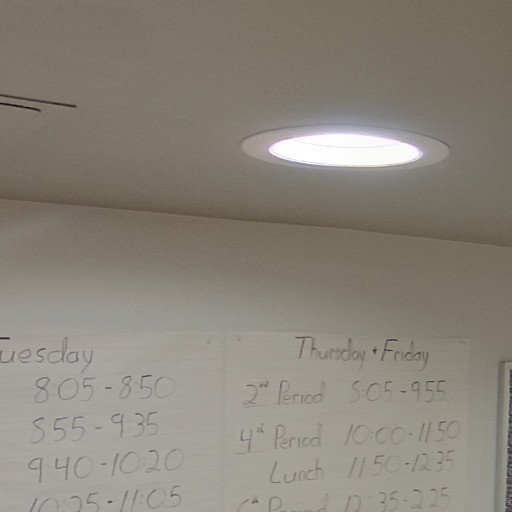 uesday
8:05-8:50
8:55-9:35
9:40-10:20
10:25-11:05
Thursday + Friday
2nd Period 8:05-9:55
4th Period 10:00-11:50
Lunch 11:50-12:35
6th Period 12:35-2:25